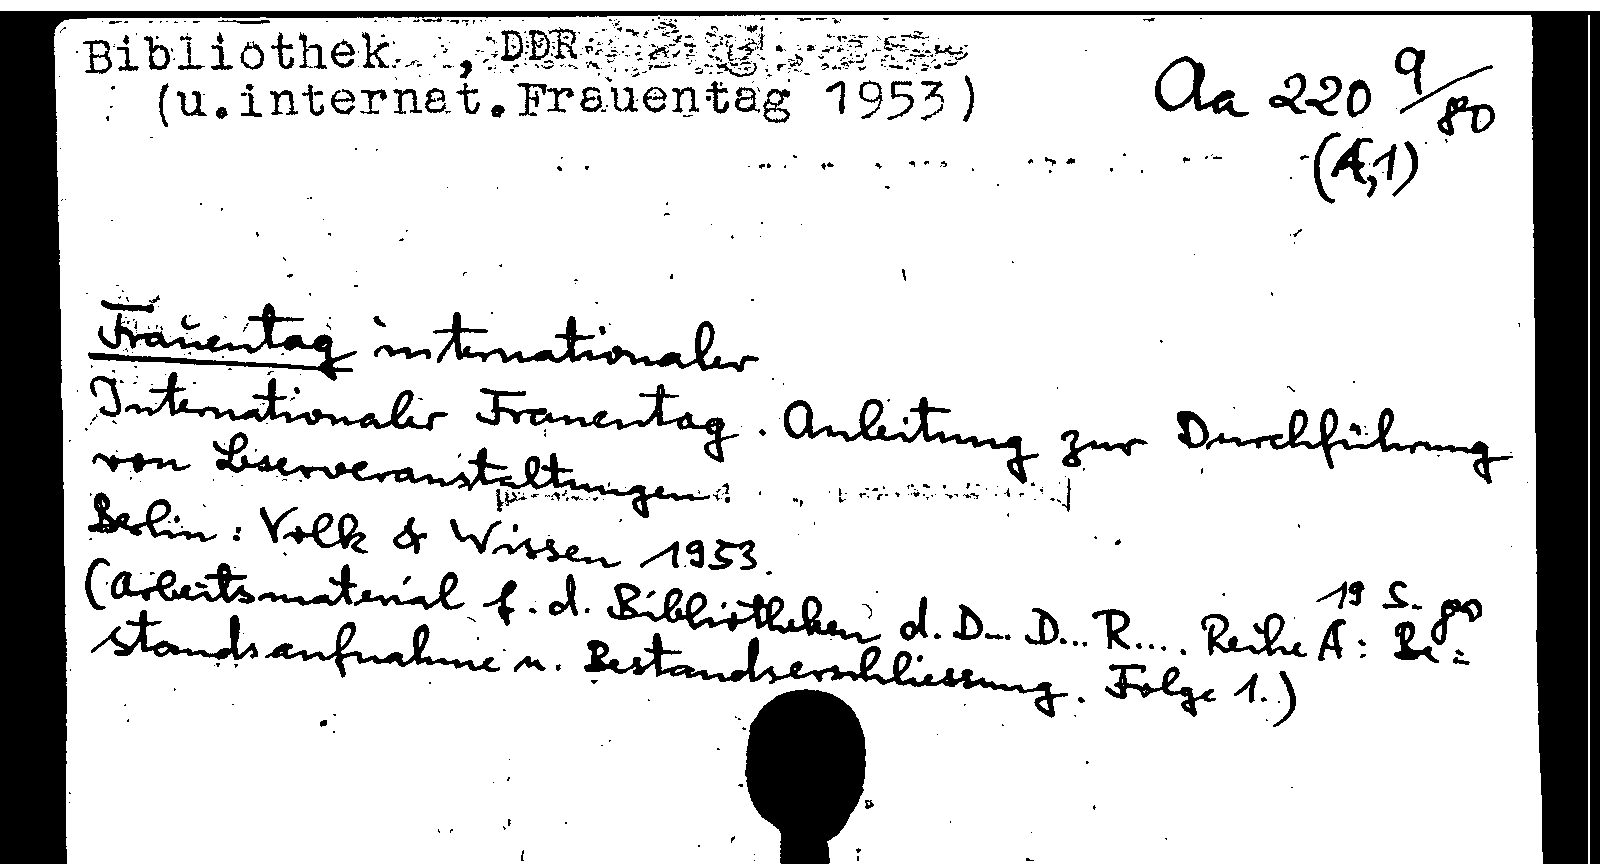 Bibliothek , DDR
(u.internat.Frauentag 1953)
Aa 220 9/80
(A,1)
Frauentag internationaler
Internationaler Frauentag. Anleitung zur Durchführung
von Leserveranstaltungen.
Berlin: Volk & Wissen 1953.
19 S. 80
(Arbeitsmaterial f. d. Bibliotheken d. D... D... R.... Reihe A: Be=
standsaufnahme u. Bestandserschliessung. Folge 1.)